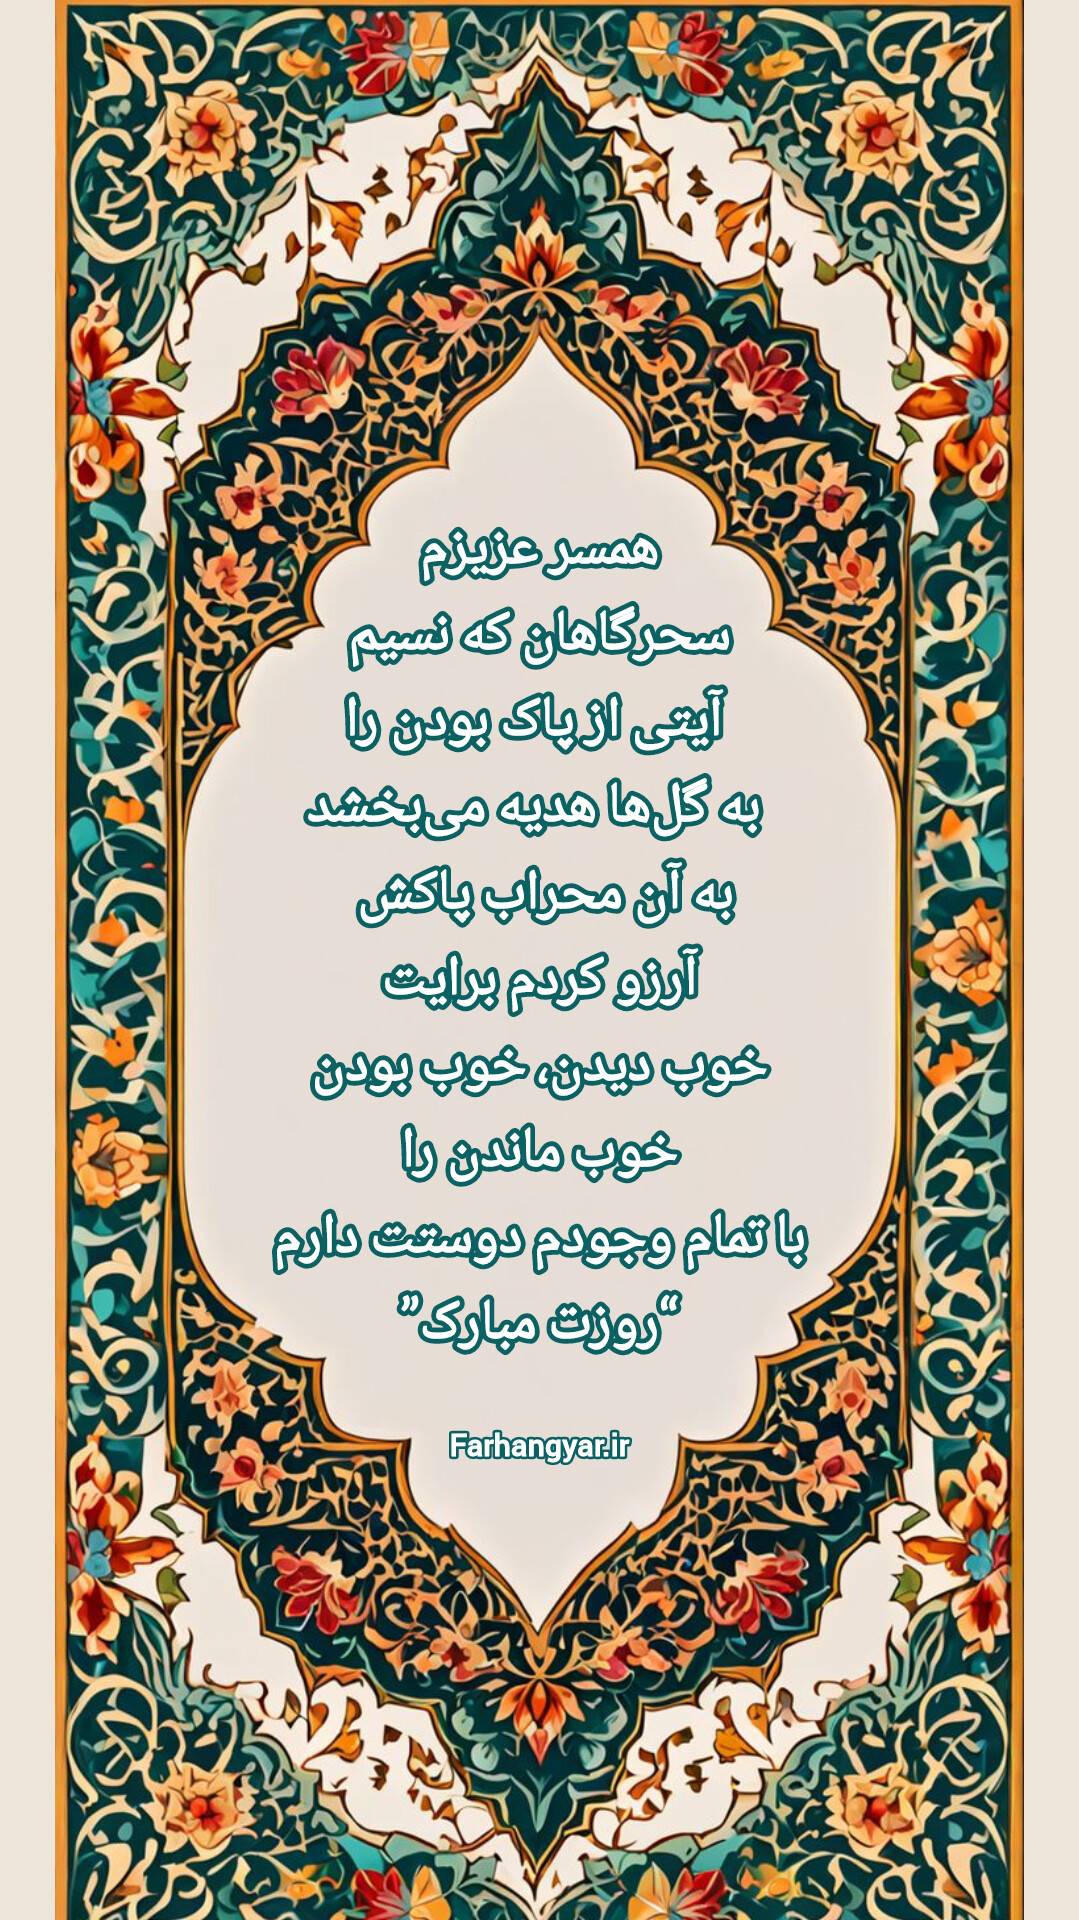 همسر عزیزم
سحرگاهان که نسیم
آیتی از پاک بودن را
به گل‌ها هدیه می‌بخشد
به آن محراب پاکش
آرزو کردم برایت
خوب دیدن، خوب بودن
خوب ماندن را
با تمام وجودم دوستت دارم
“روزت مبارک”
Farhangyar.ir